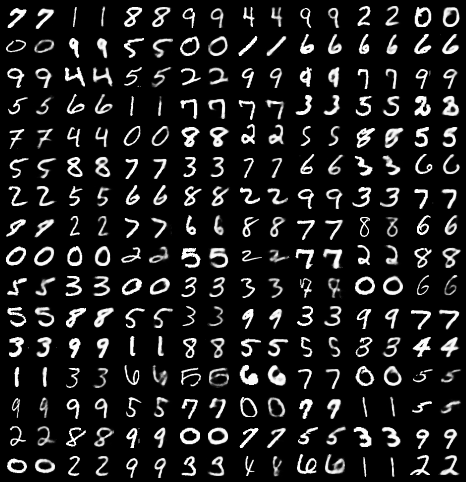 7 7 1 1 8 8 9 9 4 4 9 9 2 2 0 0
0 0 9 9 5 5 0 0 1 1 6 6 6 6 6 6
9 9 4 4 5 5 2 2 9 9 9 9 7 7 9 9
5 5 6 6 1 1 7 7 7 7 3 3 5 5 2 8
7 7 4 4 0 0 8 8 2 2 5 5 8 8 5 5
5 5 8 8 7 7 3 3 7 7 6 6 3 3 6 6
2 2 5 5 6 6 8 8 2 2 9 9 3 3 7 7
9 9 2 2 7 7 6 6 8 8 7 7 8 8 6 6
0 0 0 0 2 2 5 5 2 2 7 7 2 2 8 8
5 5 3 3 0 0 3 3 3 3 4 4 0 0 6 6
5 5 8 8 5 5 3 3 9 9 3 3 9 9 7 7
3 3 9 9 1 1 8 8 5 5 5 5 8 3 4 4
1 1 3 3 6 6 5 5 6 6 7 7 0 0 5 5
9 9 9 9 5 5 7 7 0 0 7 7 1 1 5 5
2 2 8 8 9 9 0 0 7 7 5 5 3 3 9 9
0 0 2 2 9 9 3 3 4 8 6 6 1 1 2 2